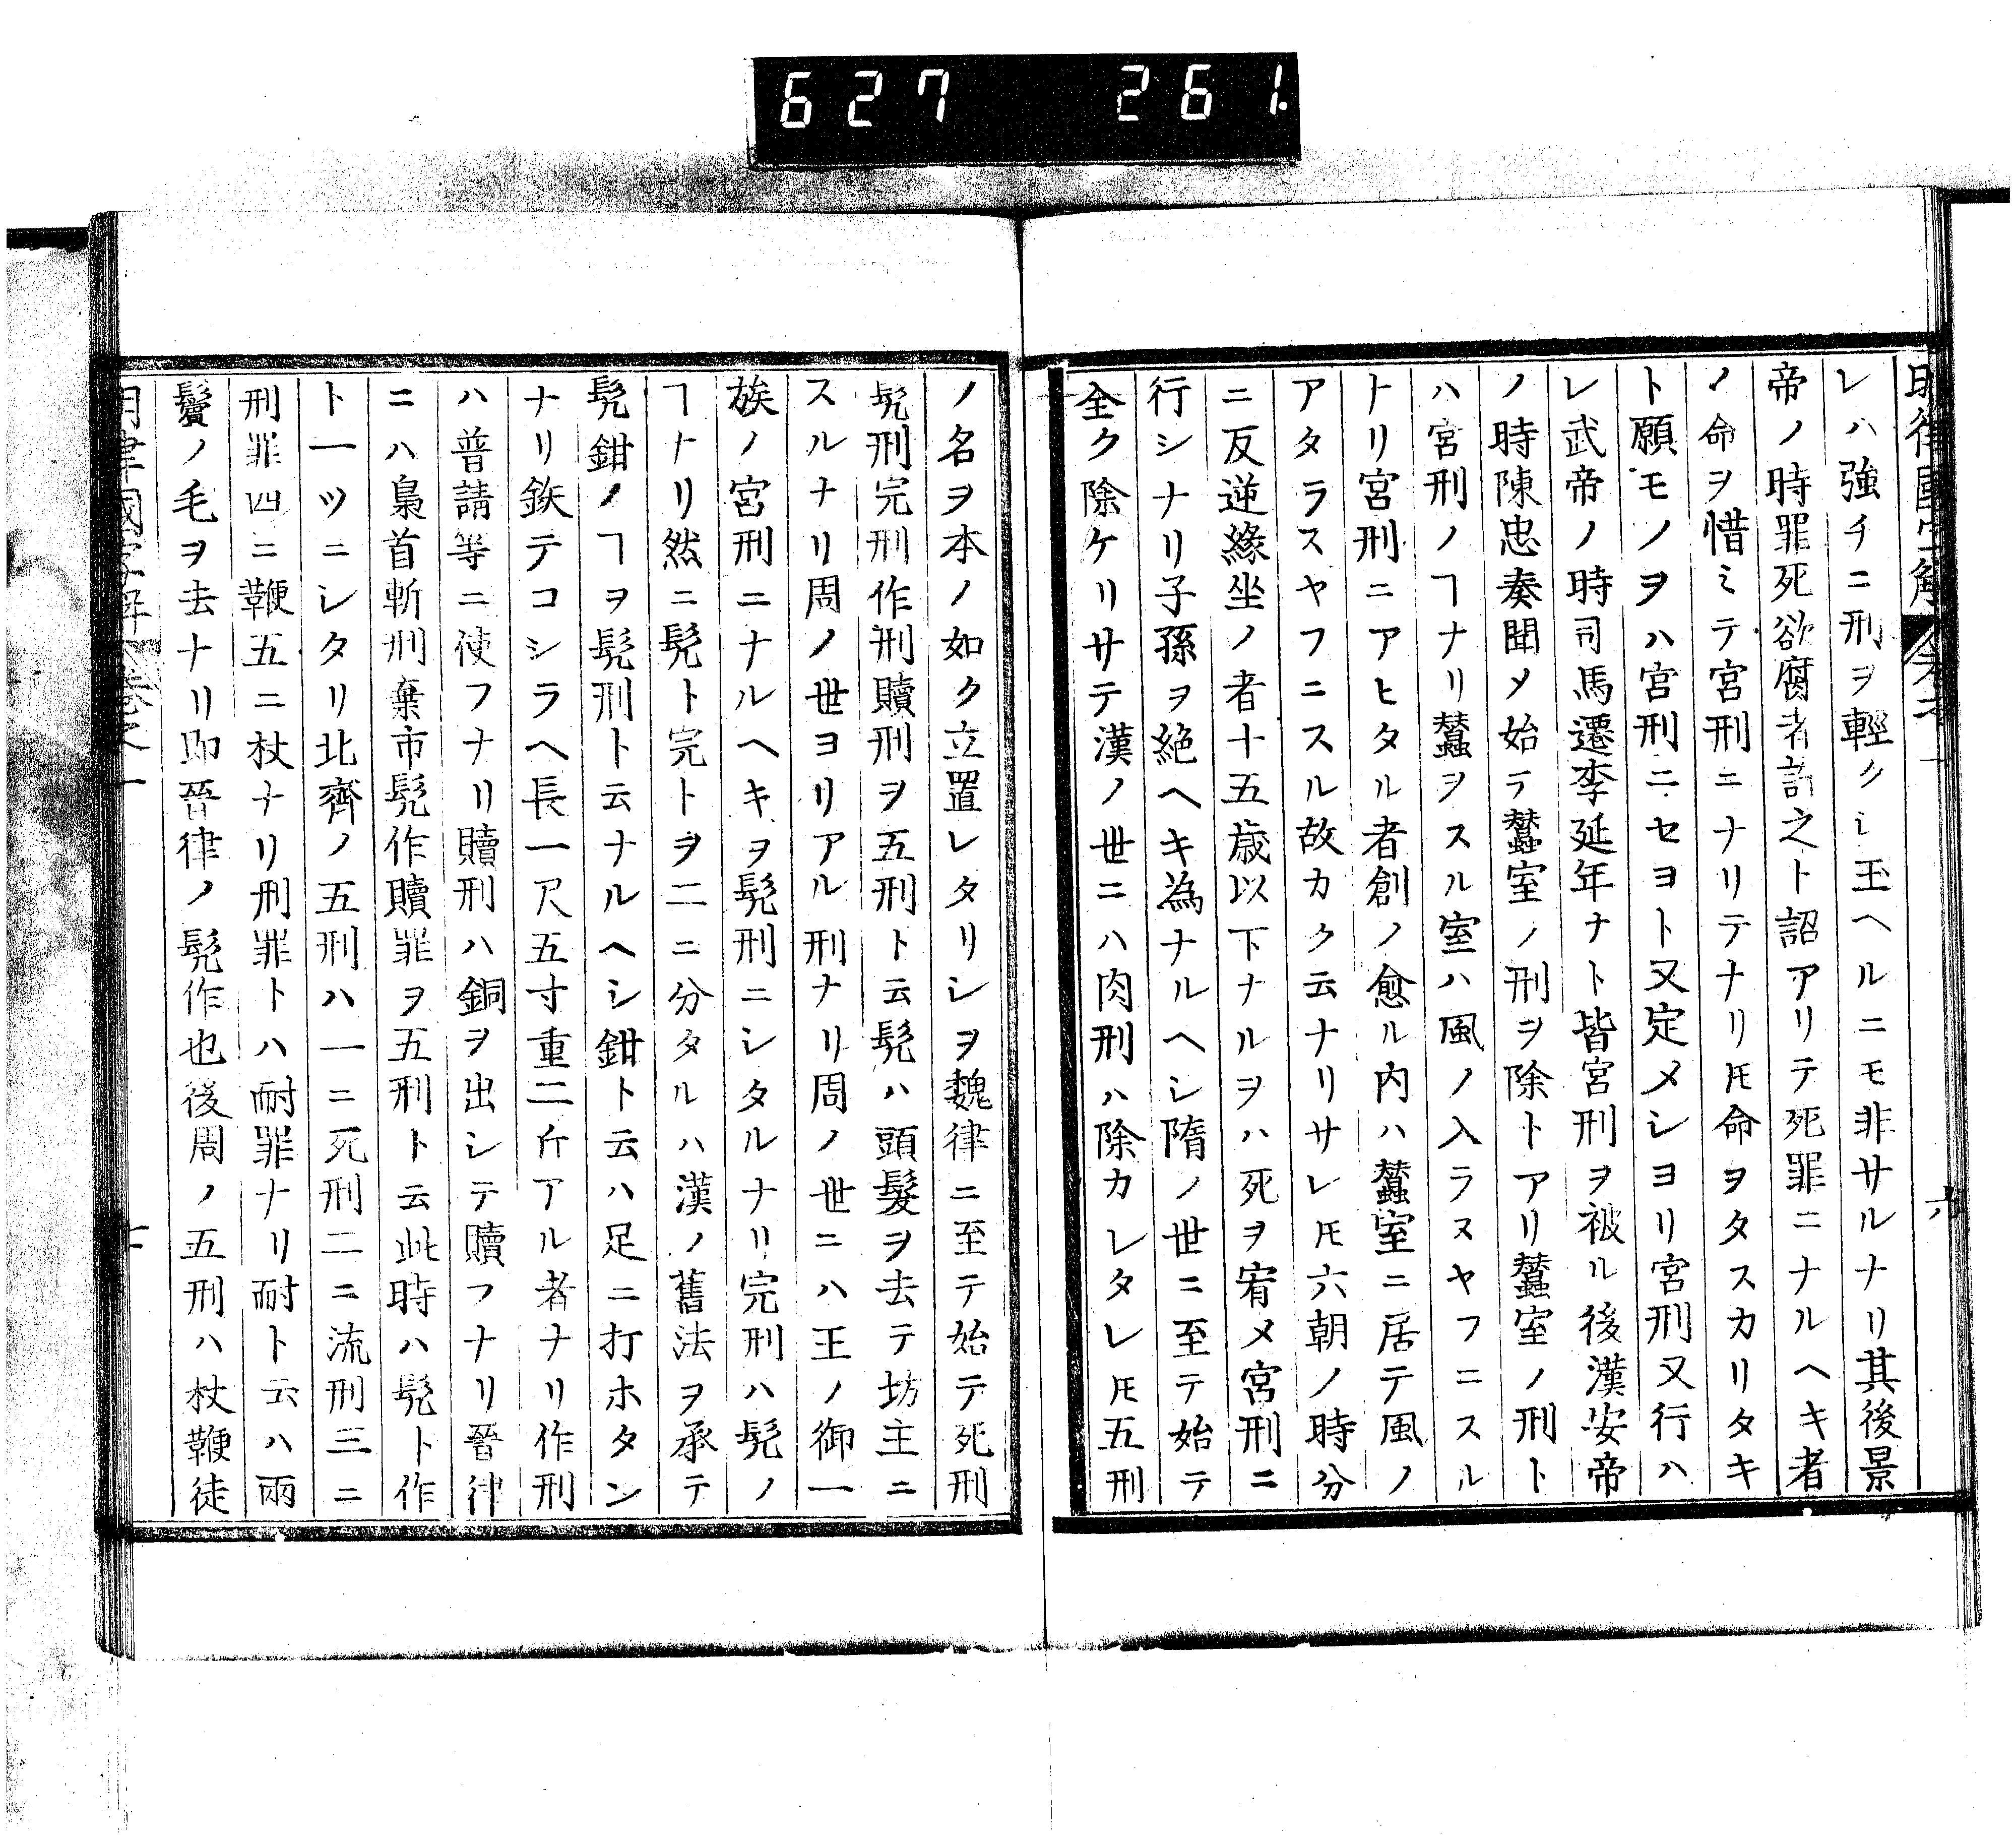 627 261
明律國字解 卷之一 六
レハ強チニ刑ヲ輕クシ玉ヘルニモ非サルナリ其後景
帝ノ時罪死欲腐者許之ト詔アリテ死罪ニナルヘキ者
ノ命ヲ惜ミテ宮刑ニナリテナリ𪜈命ヲタスカリタキ
ト願モノヲハ宮刑ニセヨト又定メシヨリ宮刑又行ハ
レ武帝ノ時司馬遷李延年ナト皆宮刑ヲ被ル後漢安帝
ノ時陳忠奏聞メ始テ蠶室ノ刑ヲ除トアリ蠶室ノ刑ト
ハ宮刑ノヿナリ蠶ヲスル室ハ風ノ入ラヌヤフニスル
ナリ宮刑ニアヒタル者創ノ愈ル内ハ蠶室ニ居テ風ノ
アタラスヤフニスル故カク云ナリサレ𪜈六朝ノ時分
ニ反逆緣坐ノ者十五歲以下ナルヲハ死ヲ宥メ宮刑ニ
行シナリ子孫ヲ絕ヘキ為ナルヘシ隋ノ世ニ至テ始テ
全ク除ケリサテ漢ノ世ニハ肉刑ハ除カレタレ𪜈五刑
ノ名ヲ本ノ如ク立置レタリシヲ魏律ニ至テ始テ死刑
髡刑完刑作刑贖刑ヲ五刑ト云髡ハ頭髮ヲ去テ坊主ニ
スルナリ周ノ世ヨリアル刑ナリ周ノ世ニハ王ノ御一
族ノ宮刑ニナルヘキヲ髡刑ニシタルナリ完刑ハ髡ノ
ヿナリ然ニ髡ト完トヲ二ニ分タルハ漢ノ舊法ヲ承テ
髡鉗ノヿヲ髡刑ト云ナルヘシ鉗ト云ハ足ニ打ホタン
ナリ鉄テコシラヘ長一尺五寸重二斤アル者ナリ作刑
ハ普請等ニ使フナリ贖刑ハ銅ヲ出シテ贖フナリ晉律
ニハ梟首斬刑棄市髡作贖罪ヲ五刑ト云此時ハ髡ト作
ト一ツニシタリ北齊ノ五刑ハ一ニ死刑二ニ流刑三ニ
刑罪四ニ鞭五ニ杖ナリ刑罪トハ耐罪ナリ耐ト云ハ兩
鬢ノ毛ヲ去ナリ即晉律ノ髡作也後周ノ五刑ハ杖鞭徒
明律國字解 卷之一 七